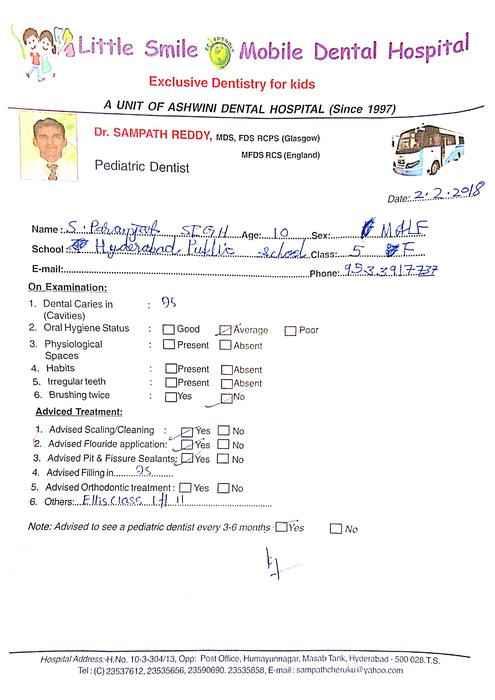 Little Smile Mobile Dental Hospital
Exclusive Dentistry for kids
A UNIT OF ASHWINI DENTAL HOSPITAL (Since 1997)
Dr. SAMPATH REDDY, MDS, FDS RCPS (Glasgow)
MFDS RCS (England)
Pediatric Dentist
Date: 2.2.2018
Name: S. Age: 10 Sex: MALE
School Hyderabad Public School Class: 5 F
E-mail: Phone: 9533917737
On Examination:
1. Dental Caries in : 75
(Cavities)
2. Oral Hygiene Status : Good Average Poor
3. Physiological : Present Absent
Spaces
4. Habits : Present Absent
5. Irregular teeth : Present Absent
6. Brushing twice : Yes No
Adviced Treatment:
1. Advised Scaling/Cleaning : Yes No
2. Advised Flouride application: Yes No
3. Advised Pit & Fissure Sealants: Yes No
4. Advised Filling in 75
5. Advised Orthodontic treatment : Yes No
6. Others: Ellis Class
Note: Advised to see a pediatric dentist every 3-6 months Yes No
Hospital Address:-H.No. 10-3-304/13, Opp: Post Office, Humayunnagar, Masab Tank, Hyderabad - 500 028.T.S.
Tel : (C) 23537612, 23535656, 23590690, 23535858, E-mail : sampathcheruku@yahoo.com